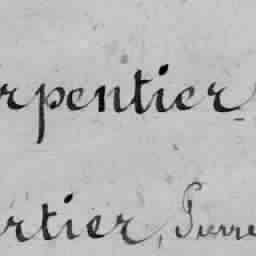 rpentier
rtier, Pierre